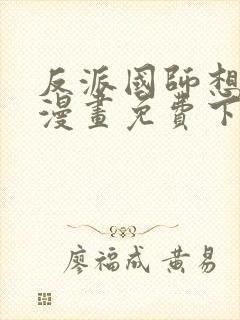 反派國師想
漫畫免費下
廖福成 黃易